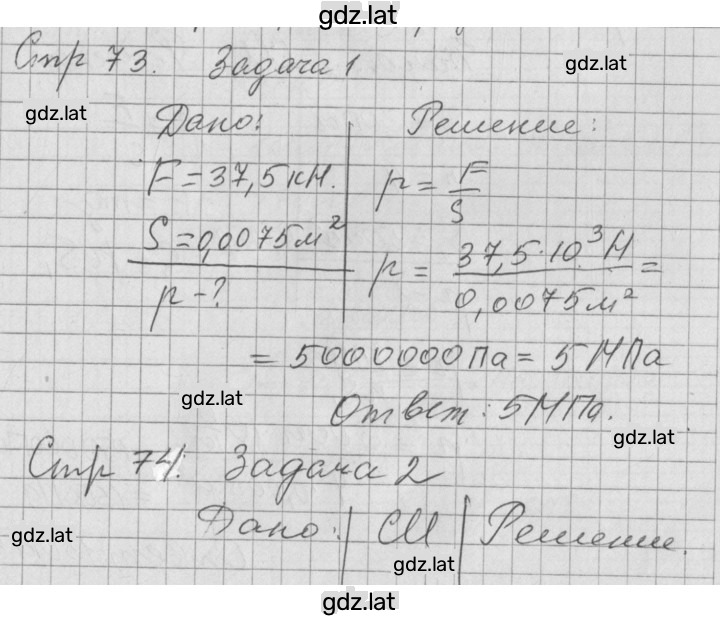 gdz.lat
Стр 73. Задача 1
gdz.lat
gdz.lat
Дано: Решение:
F = 37,5 кН. p = F/S
S = 0,0075 м²
p - ? p = 37,5·10³ Н / 0,0075 м² =
= 5000000 Па = 5 МПа
gdz.lat
Ответ: 5 МПа.
gdz.lat
Стр 74. Задача 2
Дано: СИ Решение.
gdz.lat
gdz.lat
gdz.lat